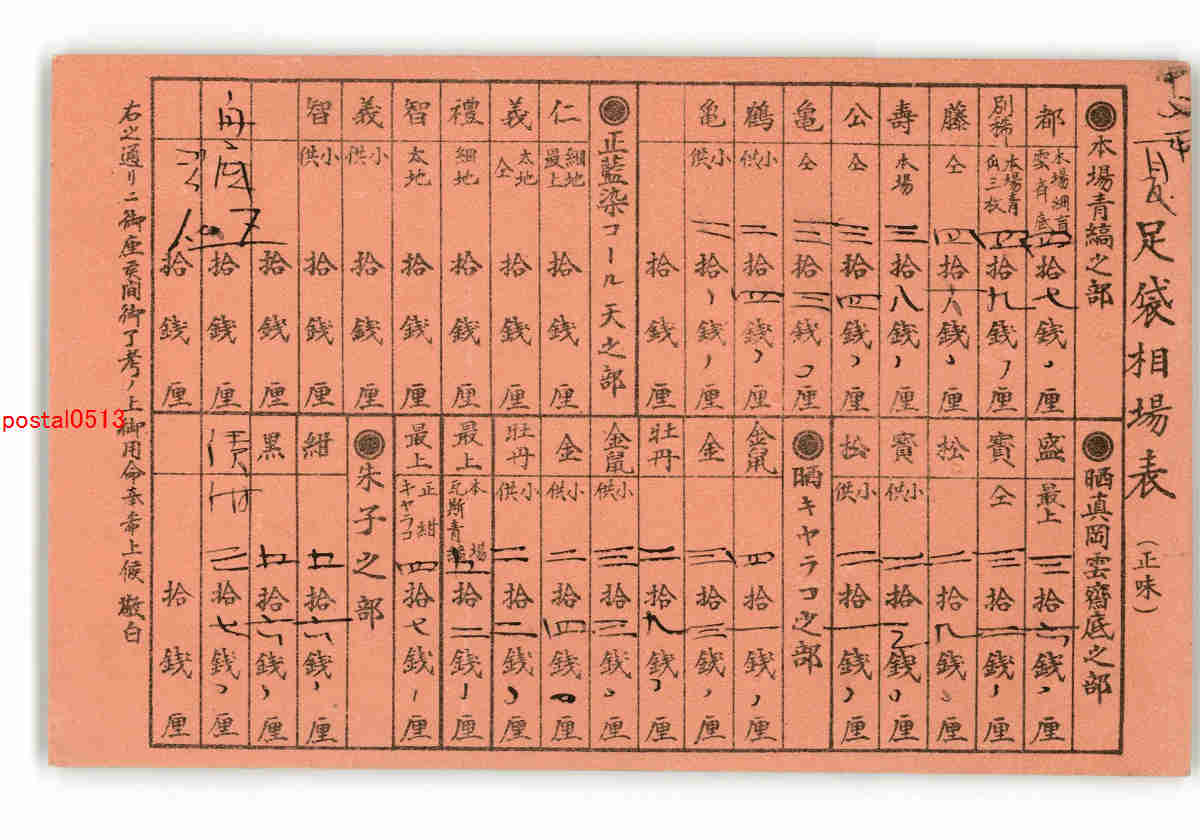 足袋相場表 (正味)
●本場青縞之部
都 本場細盲雲斉底 四拾七銭 厘
別稀 本場青角三枚 四拾九銭 厘
藤 仝 四拾六銭 厘
壽 本場 三拾八銭 厘
公 仝 三拾四銭 厘
亀 仝 三拾三銭 厘
鶴 小供 二拾四銭 厘
亀 小供 拾 銭 厘
拾 銭 厘
●正藍染コール天之部
仁 細地最上 拾 銭 厘
義 太地仝 拾 銭 厘
禮 細地 拾 銭 厘
智 太地 拾 銭 厘
義 小供 拾 銭 厘
智 小供 拾 銭 厘
拾 銭 厘
舟底 拾 銭 厘
拾 銭 厘
●晒真岡雲齋底之部
盛 最上 三拾六銭 厘
寳 仝 三拾一銭 厘
松 二拾九銭 厘
寳 小供 二拾 銭 厘
松 小供 二拾一銭 厘
●晒キヤラコ之部
金鼠 四拾一銭 厘
金 三拾三銭 厘
牡丹 二拾九銭 厘
金鼠 小供 三拾三銭 厘
金 小供 二拾四銭 厘
牡丹 小供 二拾二銭 厘
最上 本場瓦斯青縞 五拾二銭 厘
最上 正紺キヤラコ 四拾七銭 厘
●朱子之部
紺 五拾六銭 厘
黒 五拾六銭 厘
三拾七銭 厘
拾 銭 厘
右之通リニ御座候間御了考ノ上御用命奉希上候 敬白
postal0513